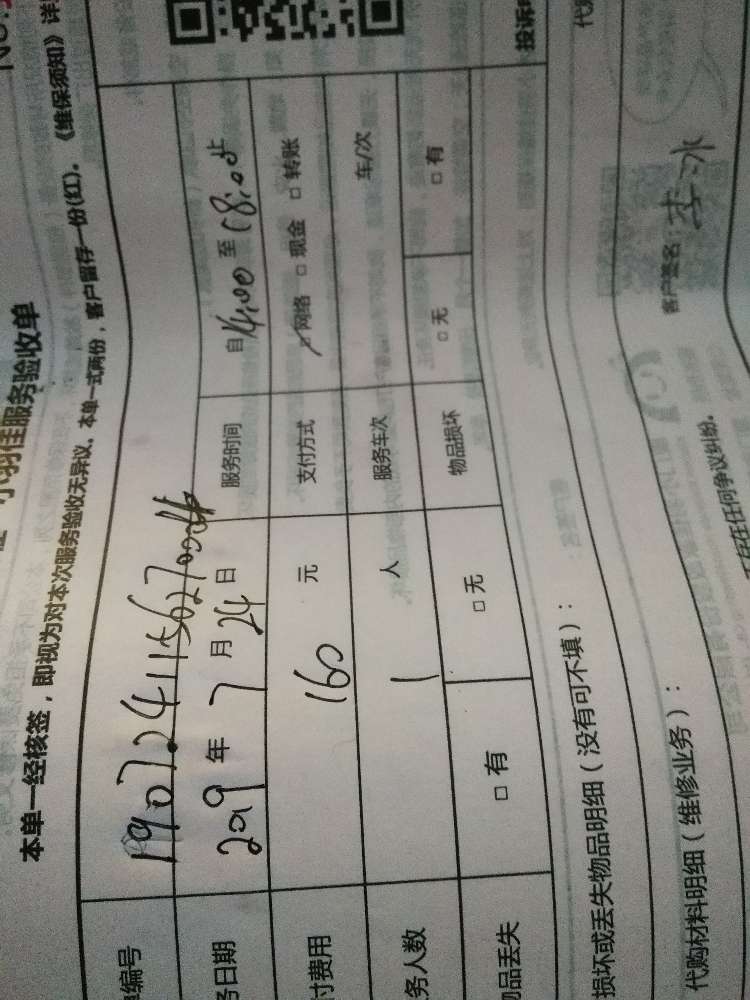 小羽佳服务验收单
本单一经核签，即视为对本次服务验收无异议。本单一式两份，客户留存一份(红)。《维保须知》详
编号
务日期 2019 年 7 月 24 日 服务时间 自 14:00 至 18:00止
付费用 160 元 支付方式 ☑网络 □现金 □转账
务人数 1 人 服务车次 车/次
物品丢失 □有 □无 物品损坏 □无 □有
投诉
损坏或丢失物品明细（没有可不填）：
代购材料明细（维修业务）：
存在任何争议纠纷。
客户签名：李冰